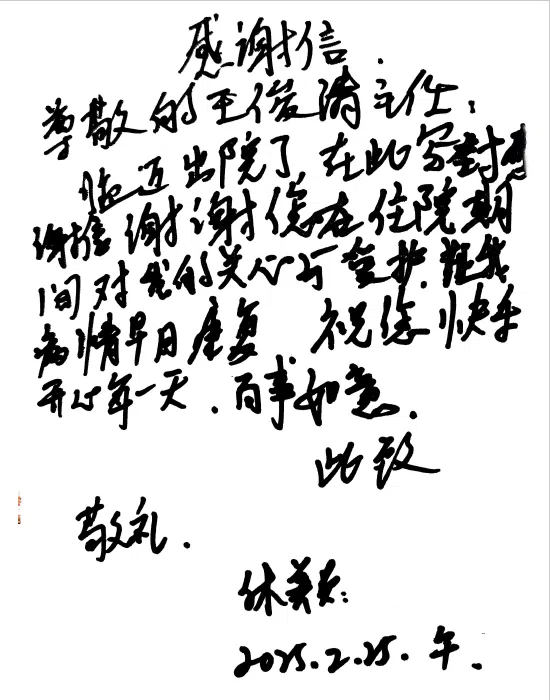 感谢信.
尊敬的王俊清主任：
临近出院了,在此写封
谢信 谢谢您在住院期
间对我的关心与爱护,让我
病情早日康复 祝您快乐
开心每一天.百事如意.
此致
敬礼.
林美
2025.2.25.午.